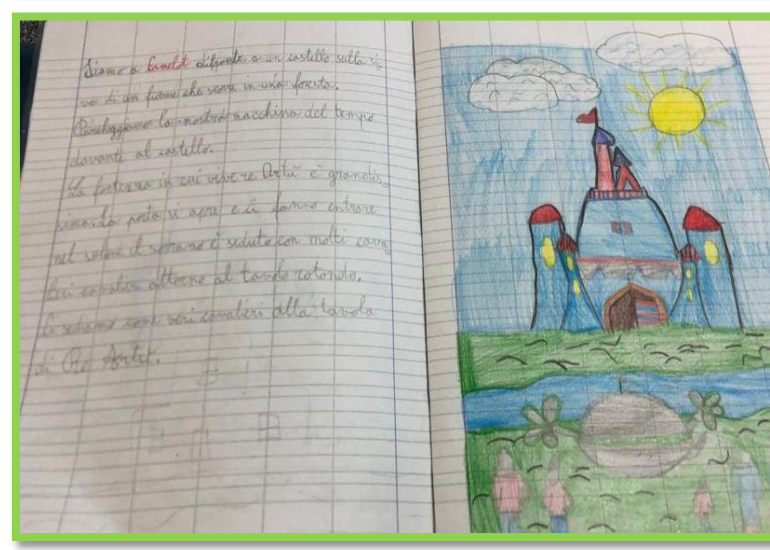 Siamo a Camelot difronte a un castello sulla ri
va di un fiume che scorre in una foresta.
Parcheggiamo la nostra macchina del tempo
davanti al castello.
La fortezza in cui vive re Artù è grandis_
sima. La porta si apre e ci fanno entrare
nel salone il sovrano è seduto con molti cava
lieri cavalieri attorno al tavolo rotondo.
Ci sediamo come veri cavalieri alla tavola
di Re Artù.